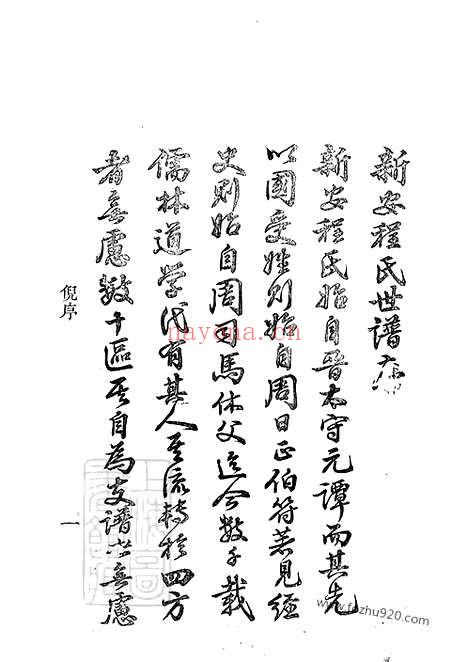 新安程氏世譜序
新安程氏始自晉太守元譚而其先
以國受姓則始自周曰正伯符若見經
史則始自周司馬休父迄今數千載
儒林道学代有其人其流轉於四方
者無慮數十區其自為支譜亦無慮
倪序
一
nayona.cn
www.fozhu920.com